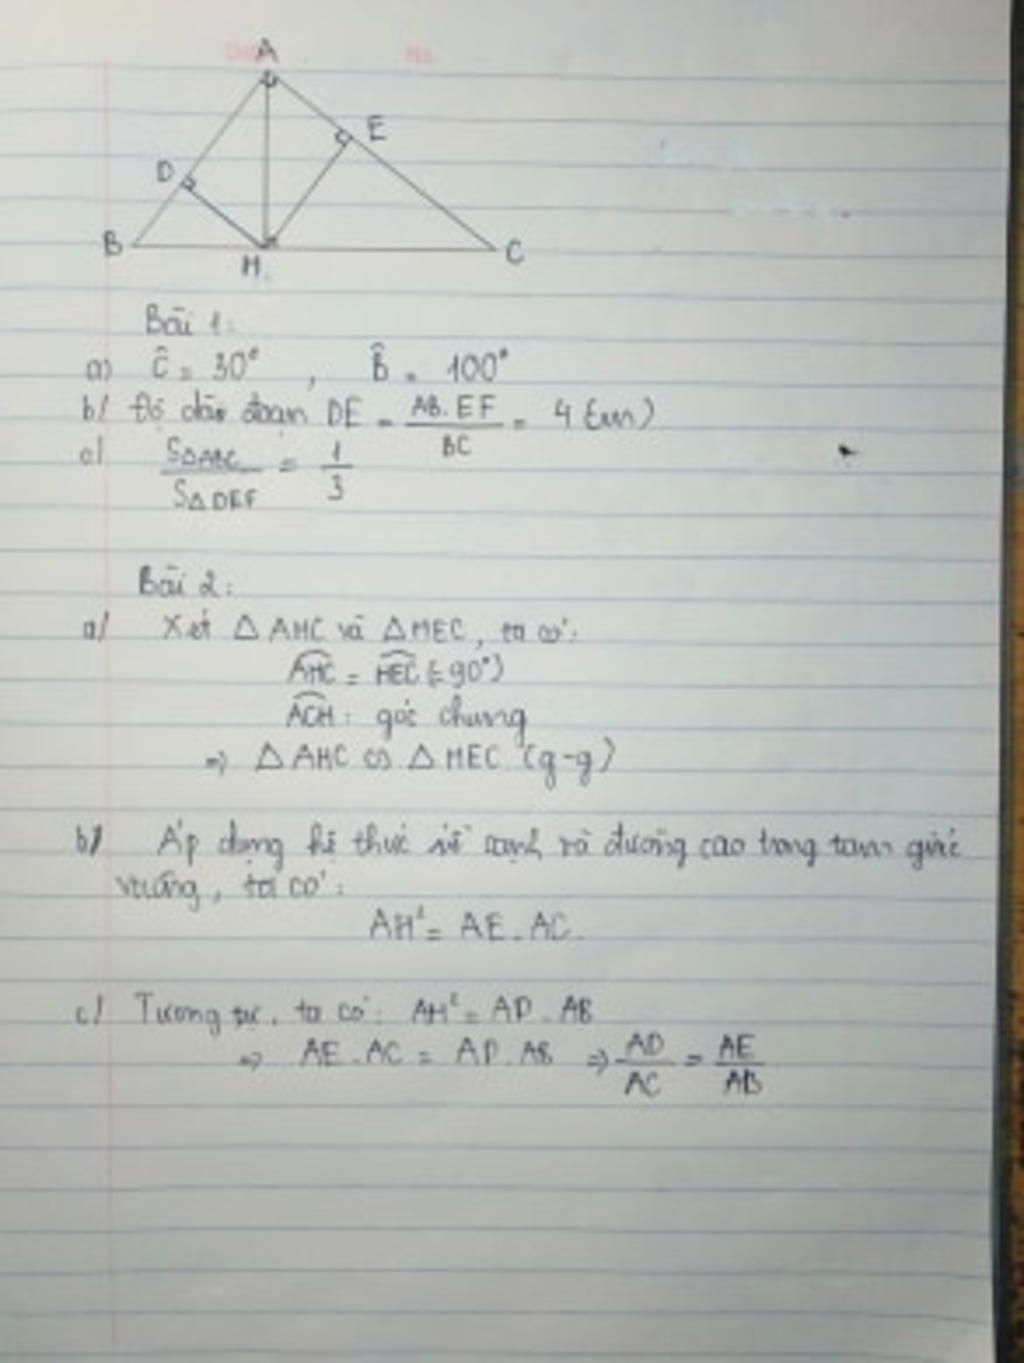 A
E
D
B
H
C
Bài 1:
a) Ĉ = 30° , B̂ = 100°
b/ Độ dài đoạn DE = AB.EF / BC = 4 (cm)
c/ S△ABC / S△DEF = 1/3
Bài 2:
a/ Xét △AHC và △HEC, ta có:
AHC = HEC (=90°)
ACH: góc chung
⇒ △AHC ∽ △HEC (g-g)
b/ Áp dụng hệ thức về cạnh và đường cao trong tam giác
vuông, ta có:
AH² = AE.AC.
c/ Tương tự, ta có: AH² = AD.AB
⇒ AE.AC = AD.AB ⇒ AD/AC = AE/AB